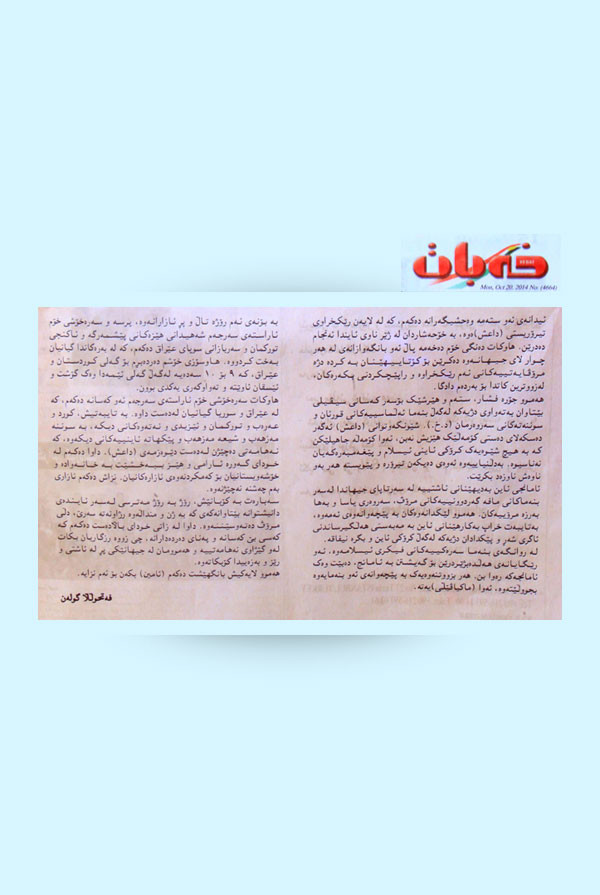 خەبات
XEBAT
Mon, Oct 20. 2014 No. (4664)
ئیدانەی ئەو ستەمە وەحشیگەرانە دەکەم، کە لە لایەن رێکخراوی
تیرۆریستی (داعش)ەوە، بە خۆحەشاردان لە ژێر ناوی ئایندا ئەنجام
دەدرێن. هاوکات دەنگی خۆم دەخەمە پاڵ ئەو بانگەوازانەی لە هەر
چوار لای جیهانەوە دەکرێن بۆ کۆتاییهێنان بە کردە دژە
مرۆڤایەتییەکانی ئەم رێکخراوە و راپێچکردنی چەکدارەکان،
لە زووترین کاتدا بۆ بەردەم دادگا.
هەموو جۆرە فشار، ستەم و هێرشێک بۆسەر کەسانی سیڤیلی
بێتاوان بەتەواوی دژیەکە لەگەڵ بنەما ئەڵماسییەکانی قورئان و
سوننەتەکانی سەروەرمان (د.خ.). شوێنکەوتوانی (داعش) ئەگەر
دەسکەلای دەستی کۆمەڵێک هێزیش نەبن، ئەوا کۆمەڵە جاهیلێکن
کە بە هیچ شێوەیەک کرۆکی ئاینی ئیسلام و پێغەمبەرەکەیان
نەناسیوە. بەدڵنیاییەوە ئەوەی دەیکەن تیرۆرە و پێویستە هەر بەو
ناوەش ناوزەد بکرێت.
ئامانجی ئاین بەدیهێنانی ئاشتییە لە سەرتاپای جیهاندا لەسەر
بنەماکانی مافە گەردوونییەکانی مرۆڤ، سەروەری یاسا و بەها
بەرزە مرۆییەکان. هەموو لێکدانەوەکان بە پێچەوانەوەی ئەمەوە،
بەتایبەت خراپ بەکارهێنانی ئاین بە مەبەستی هەڵگیرساندنی
ئاگری شەڕ و پێکدادان دژیەکە لەگەڵ کرۆکی ئاین و بگرە نیفاقە.
لە روانگەی بنەما سەرەکییەکانی فیکری ئیسلامەوە، ئەو
رێگایانەی هەڵدەبژێردرێن بۆ گەیشتن بە ئامانج، دەبێت وەک
ئامانجەکە رەوا بن. هەر بزووتنەوەیەک بە پێچەوانەی ئەو بنەمایەوە
بجووڵێتەوە، ئەوا (ماکیاڤێلی)یەتە.
بە بۆنەی ئەم رۆژە تاڵ و پڕ ئازارانەوە، پرسە و سەرەخۆشی خۆم
ئاراستەی سەرجەم شەهیدانی هێزەکانی پێشمەرگە و ناکنجی
تورکمان و سەربازانی سوپای عێراق دەکەم، کە لە بەرەکاندا گیانیان
بەخت کردووە. هاوسۆزی خۆشم دەردەبڕم بۆ گەلی کوردستان و
عێراق، کە ٩ بۆ ١٠ سەدەیە لەگەڵ گەلی ئێمەدا وەک گۆشت و
ئێسقان ئاوێتە و تەواوکەری یەکدی بوون.
هاوکات سەرەخۆشی خۆم ئاراستەی سەرجەم ئەو کەسانە دەکەم، کە
لە عێراق و سوریا گیانیان لەدەست داوە. بە تایبەتیش، کورد و
عەرەب و تورکمان و ئێزیدی و نەتەوەکانی دیکە، بە سوننە
مەزهەب و شیعە مەزهەب و پێکهاتە ئاینییەکانی دیکەوە، کە
نەهامەتی دەچێژن لەدەست دێوەزمەی (داعش). داوا دەکەم لە
خودای گەورە ئارامی و هێز ببەخشێت بە خانەوادە و
خۆشەویستانیان بۆ کەمکردنەوەی ئازارەکانیان. نزاش دەکەم ئازاری
بەم چەشنە نەچێژنەوە.
سەبارەت بە کۆبانێش، رۆژ بە رۆژ مەترسی لەسەر ئایندەی
دانیشتوانە بێتاوانەکەی کە بە ژن و منداڵەوە رژاونەتە سەرێ، دڵی
مرۆڤ دەتەوسێننەوە. داوا لە زاتی خودای باڵادەست دەکەم کە
کەسی بێ کەسانە و پەنای دەردەدارانە، چی زووە رزگاریان بکات
لەو گێژاوی نەهامەتییە و هەموومان لە جیهانێکی پڕ لە ئاشتی و
رێز و بەزەییدا کۆبکاتەوە.
هەموو لایەکیش بانگهێشت دەکەم (ئامین) بکەن بۆ ئەم نزایە.
فەتحوڵلا گولەن